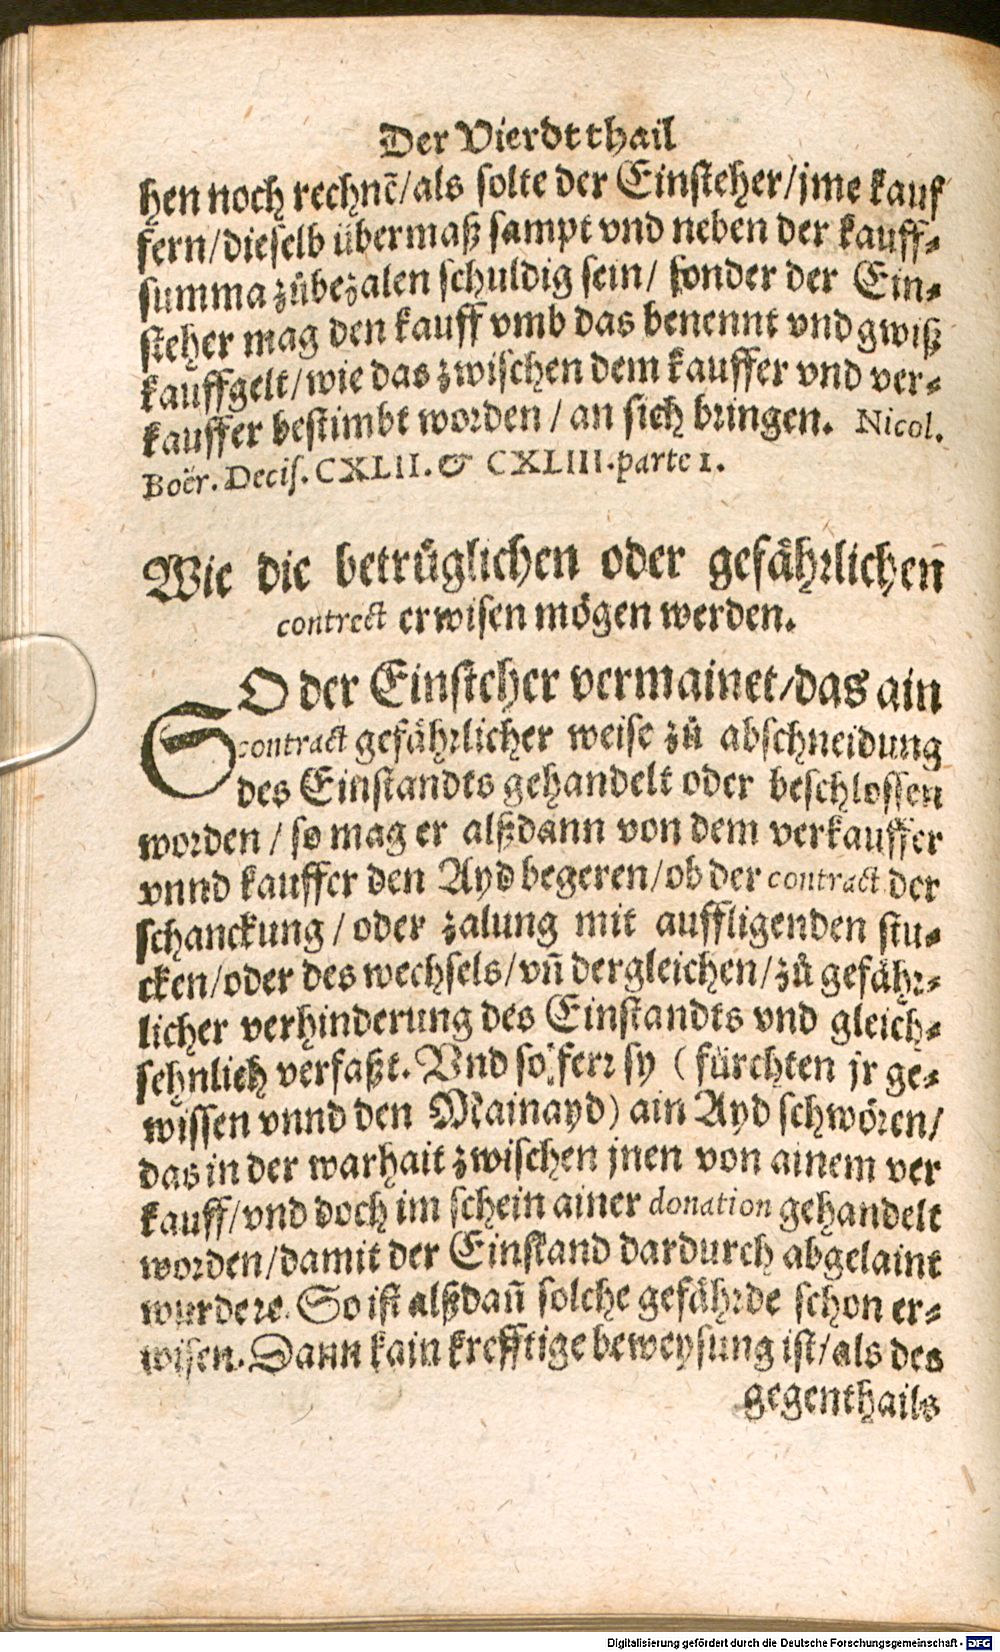 Der Vierdt thail
hen noch rechnẽ/als solte der Einsteher/jme kauf
fern/dieselb übermaß sampt vnd neben der kauff-
summa zůbezalen schuldig sein/ sonder der Ein-
steher mag den kauff vmb das benennt vnd gwiß
kauffgelt/wie das zwischen dem kauffer vnd ver-
kauffer bestimbt worden/an sich bringen. Nicol.
Boër. Decis. CXLII. & CXLIII. parte 1.
Wie die betrüglichen oder gefährlichen
contrect erwisen mögen werden.
SO der Einsteher vermainet/das ain
contract gefährlicher weise zů abschneidung
des Einstandts gehandelt oder beschlossen
worden/so mag er alßdann von dem verkauffer
vnnd kauffer den Ayd begeren/ob der contract der
schanckung/oder zalung mit auffligenden stu-
cken/oder des wechsels/vñ dergleichen/zů gefähr-
licher verhinderung des Einstandts vnd gleich-
sehnlich verfaßt. Vnd so ferr sy (fürchten jr ge-
wissen vnnd den Mainayd) ain Ayd schwören/
das in der warhait zwischen jnen von ainem ver
kauff/vnd doch im schein ainer donation gehandelt
worden/damit der Einstand dardurch abgelaint
wurde re. So ist alßdañ solche gefährde schon er-
wisen. Dann kain krefftige beweysung ist/als des
gegenthails
Digitalisierung gefördert durch die Deutsche Forschungsgemeinschaft - DFG